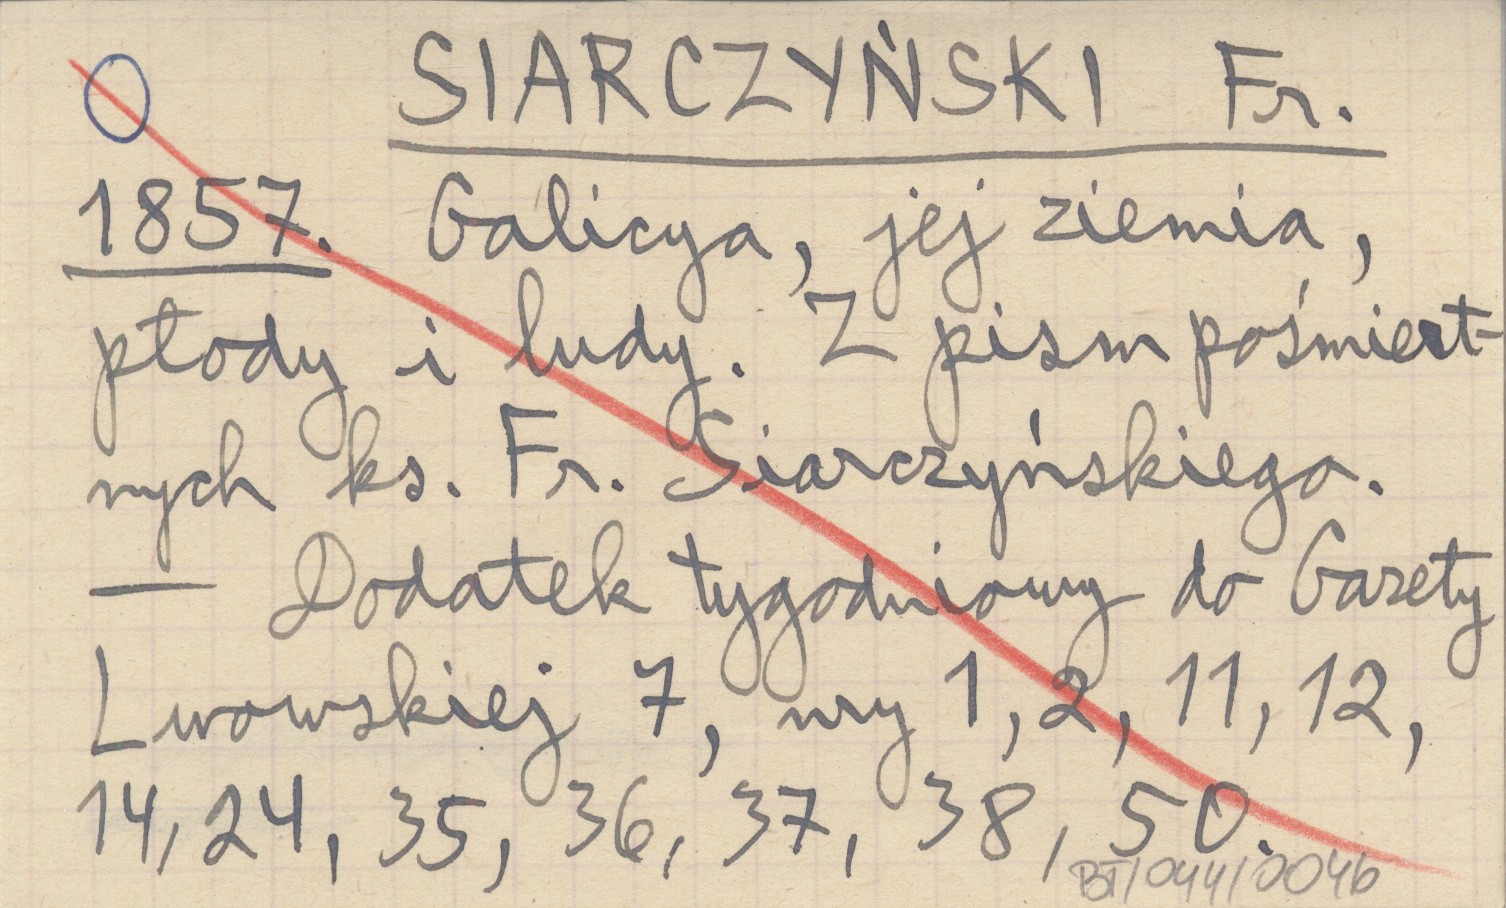 SIARCZYŃSKI Fr.
1857. Galicya, jej ziemia,
płody i ludy. Z pism pośmiert-
nych ks. Fr. Siarczyńskiego.
— Dodatek tygodniowy do Gazety
Lwowskiej 7, nry 1, 2, 11, 12,
14, 24, 35, 36, 37, 38, 50.
BT/044/0046